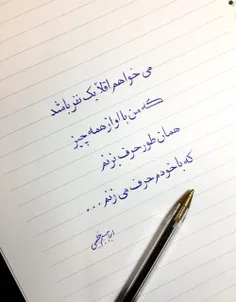 می خواهم اقلا یک نفر باشد
که من با او از همه چیز
همان طور حرف بزنم
که با خودم حرف می زنم ...